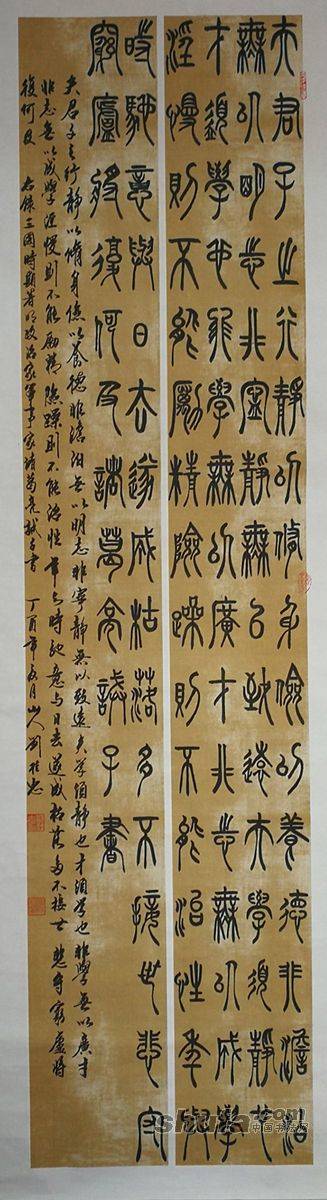 夫君子之行靜以脩身儉以養德非澹泊
無以明志非寧靜無以致遠夫學須靜也
才須學也非學無以廣才非志無以成學
淫慢則不能勵精險躁則不能治性年與
時馳意與日去遂成枯落多不接世悲守
窮廬將復何及諸葛亮誡子書
夫君子之行靜以脩身儉以養德非澹泊無以明志非寧靜無以致遠夫學須靜也才須學也非學無以廣才
非志無以成學淫慢則不能勵精險躁則不能治性年与時馳意与日去遂成枯落多不接世悲守窮廬將
復何及 右錄三國時期著名政治家軍事家諸葛亮誡子書 丁酉年月山人劉桂
.com
中国书法